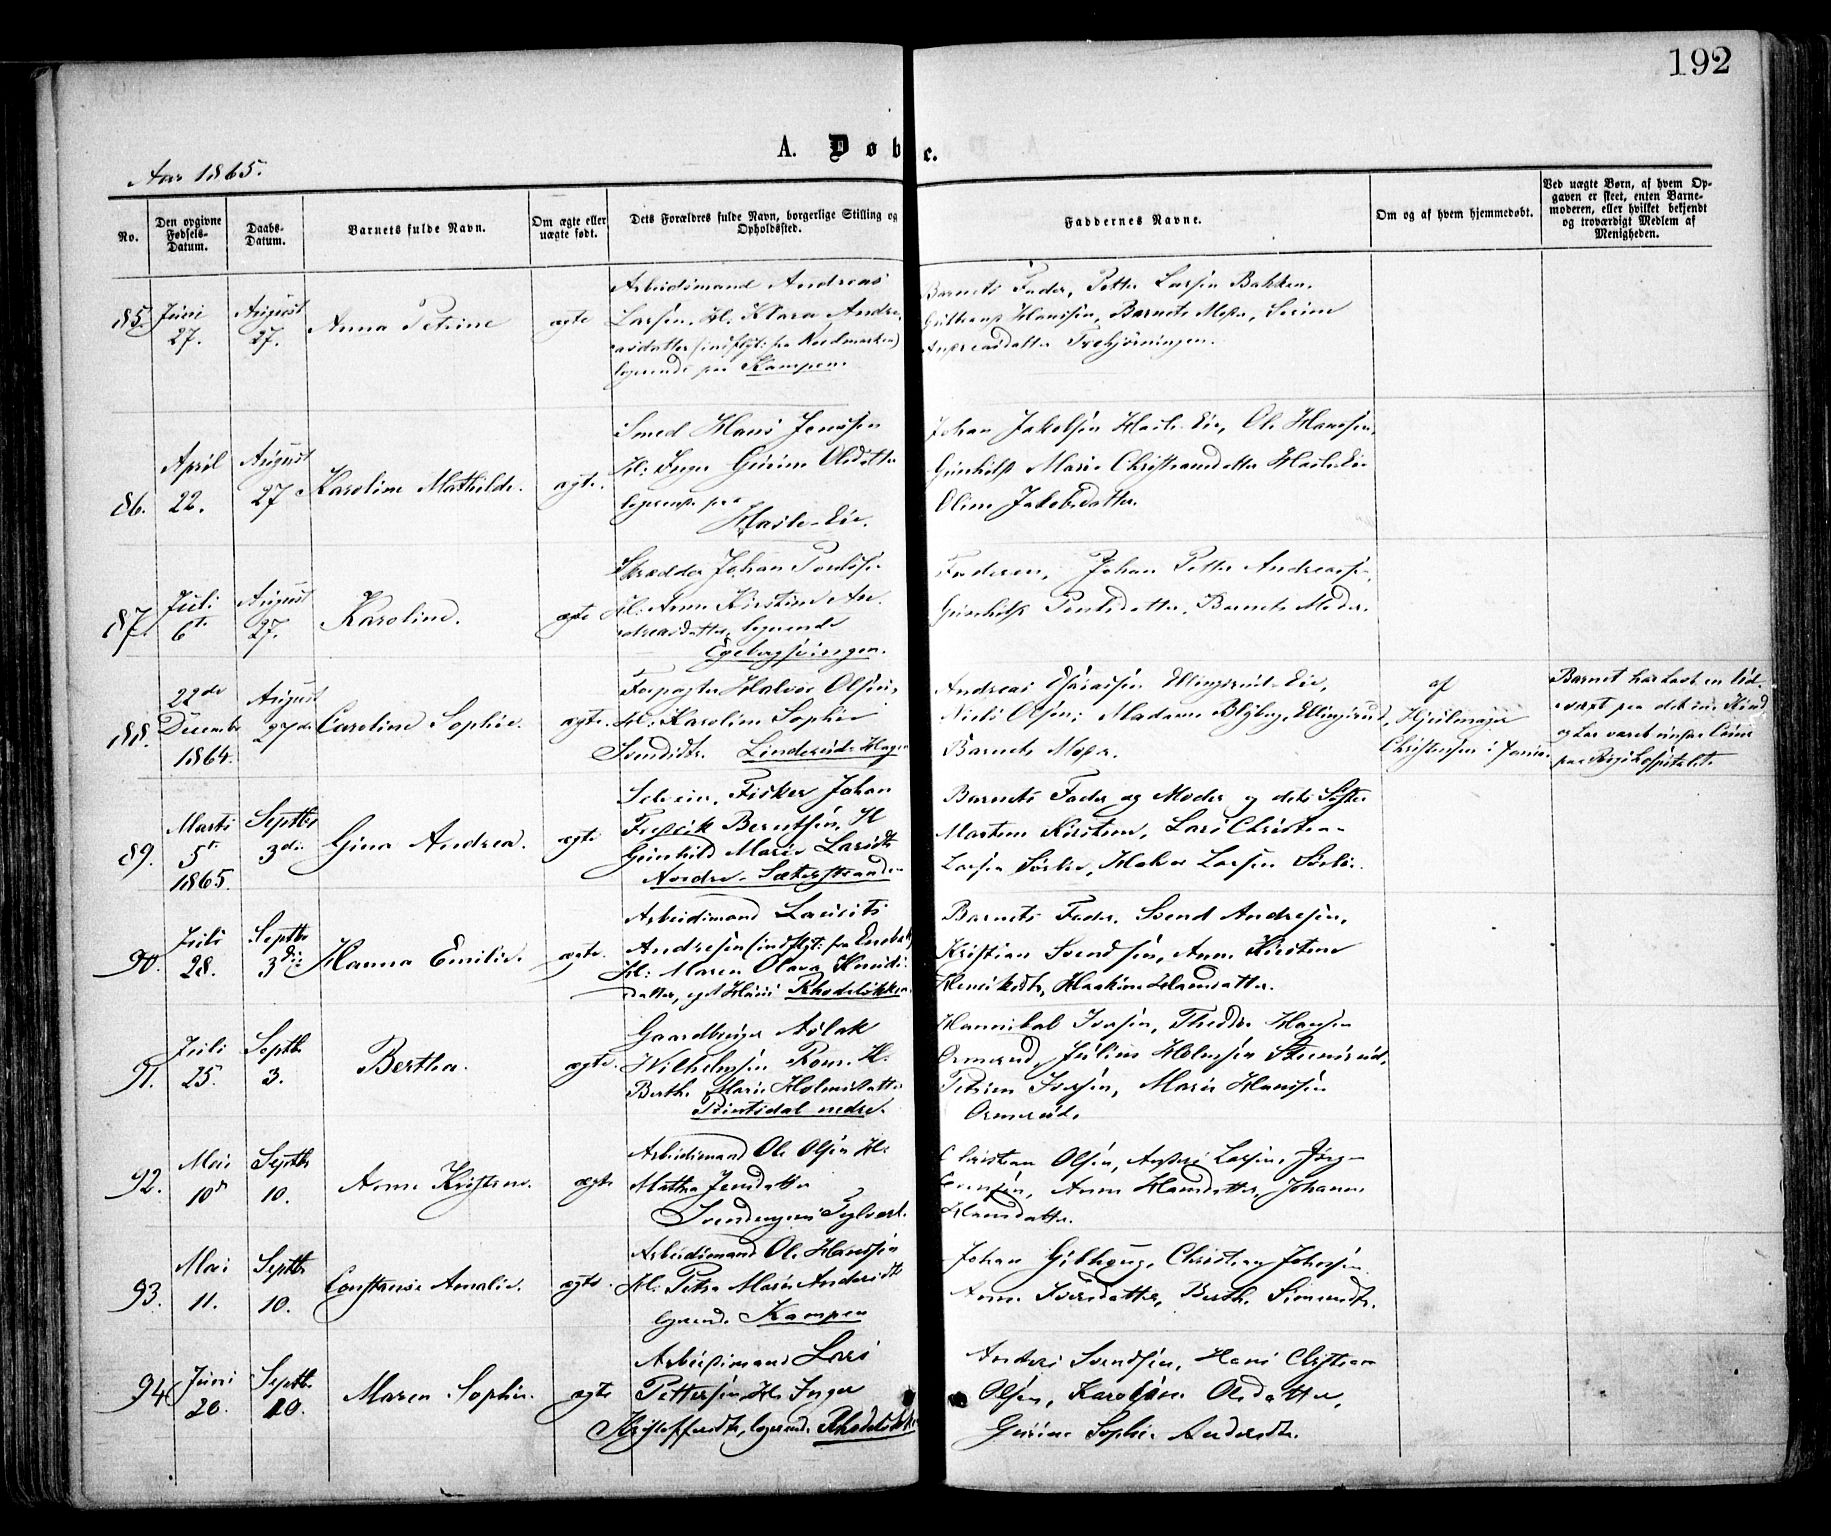 192
A. Døbte.
Aar 1865.
No.
Den opgivne
Fødsels-
Datum.
Daabs-
Datum.
Barnets fulde Navn.
Om ægte eller
uægte født.
Dets Forældres fulde Navn, borgerlige Stilling og
Opholdssted.
Faddernes Navne.
Om og af hvem hjemmedøbt.
Ved uægte Børn, af hvem Op-
gaven er skeet, enten Barne-
moderen, eller hvilket bekjendt
og troværdigt Medlem af
Menigheden.
85.
Juni
27.
August
27.
Anna Petrine
ægte
Arbeidsmand Andreas
Larsen. H: Klara Andre-
asdatter (indflyt: fra Nordmarken)
logerende paa Kampen.
Barnets Fader, Petter Larsen Bakken.
Hansen, Barnets Moder,
Andreasdatter
86.
April
22.
August
27
Karoline Mathilde.
ægte.
Smed Hans Jensen
H: Inger Gurine Olsdatter
logerende paa
Hasle-Eie.
Johan Jakobsen Hasle-Eie, Ole Hansen,
Gunhild Marie Christiansdatter Hasle-Eie
Oline Jakobsdatter.
87.
Juli
6te
August
27.
Karoline.
ægte
Skrædder Johan
H: Anne Kirstine An-
dreasdatter, logerende
Egebergsvingen.
Faderen, Johan Petter Andreasen,
Gunhild Barnets Moder.
88.
22de
December
1864.
August
27de
Caroline Sophie.
ægte.
Forpagter Halvor Olsen,
H: Karoline Sophie
Svendsdtr. Linderud-Hagen
Andreas Esaiassen Ellingsrud-Eie,
Niels Olsen, Madame Blyberg, Ellingsrud,
Barnets Moder.
af
Christensen i
Barnet har havt en Ud-
væxt paa det ene Kind
og har været under Cuur
paa Rigshospitalet.
89.
Marts
5te
1865.
Septbr
3die
Gina Andrea.
ægte
Selveier, Fisker Johan
Fredrik Berntsen, H
Gunhild Marie Larsdtr
Nordre-Sæterstranden
Barnets Fader og Moder og dets Søster
Martine Kirstine, Lars Christian
Larsen Sørlie, Halvor Larsen Sørlie.
90.
Juli
28.
Septbr
3die
Hanna Emilie.
ægte.
Arbeidsmand Laurits
Andresen (indflyt: fra Enebak)
H: Maren Olava Knuds-
datter, eget Huus Rhodeløkken
Barnets Fader, Svend Andresen,
Kristian Svendsen, Anne Kirstine
Henriksdtr, Hansdatter.
91.
Juli
25.
Septbr
3.
Bertha.
ægte.
Gaardbruger Aslak
Wilhelmsen H.
Berthe Marie Holmsdatter
nedre.
Hannibal Iversen, Theodor Hansen
Ormerud, Julius Holmsen
Petrine Iversen, Marie Hansen
Ormerud.
92.
Mai
10de
Septbr
10.
Anne Kristine.
ægte
Arbeidsmand Ole Olsen H:
Mathea Jensdatter
Svendengen
Christian Olsen, Anders Larsen, Jørgen
Evensen, Anne Hansdatter, Johanne
Hansdatter.
93.
Mai
11.
Septbr
10.
Constanse Amalie.
ægte.
Arbeidsmand Ole Hansen
H: Petra Marie Andersdtr
logerende Kampen
Johan Christian Johnsen.
Anne Iversdatter, Berthe Simensdtr.
94
Juni
20.
Septbr
10.
Maren Sophie.
ægte
Arbeidsmand Lars
Pettersen, H: Inger
Kristoffersdtr, logerende Rhodeløkken
Anders Svendsen, Hans Christian
Olsen, Karoline Olsdatter,
Gurine Sophie Andersdtr.